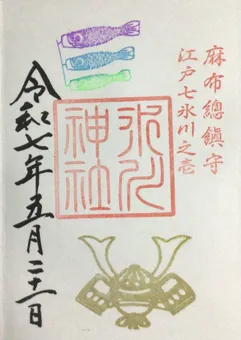 麻布總鎮守
江戸七氷川之壱
氷川
神社
令和七年五月二十一日